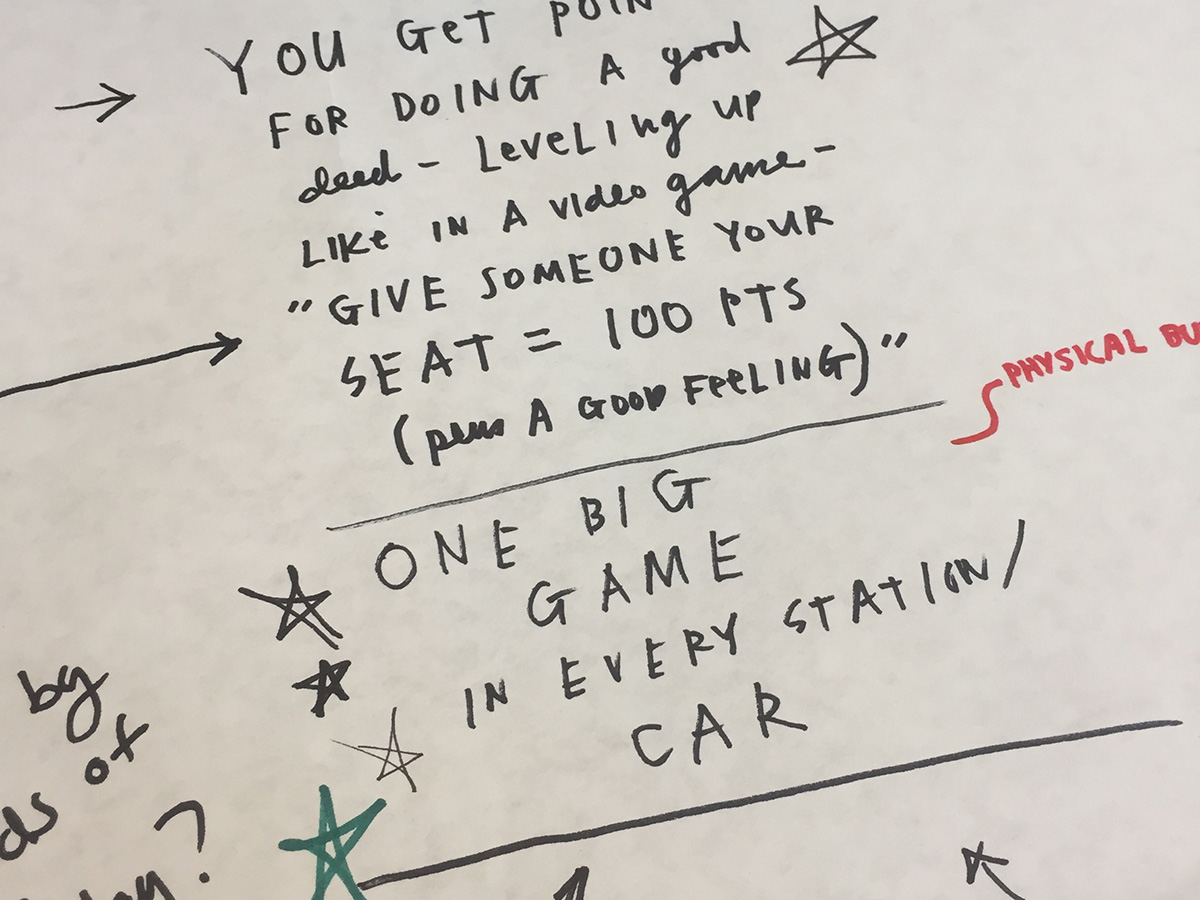 YOU GET POIN
FOR DOING A good
deed - LeveLing up
LIKE IN A video game -
"GIVE SOMEONE YOUR
SEAT = 100 PTS
(plus A GOOD FEELING)"
PHYSICAL BU
ONE BIG
GAME
IN EVERY STATION/
CAR
by
ds of
?